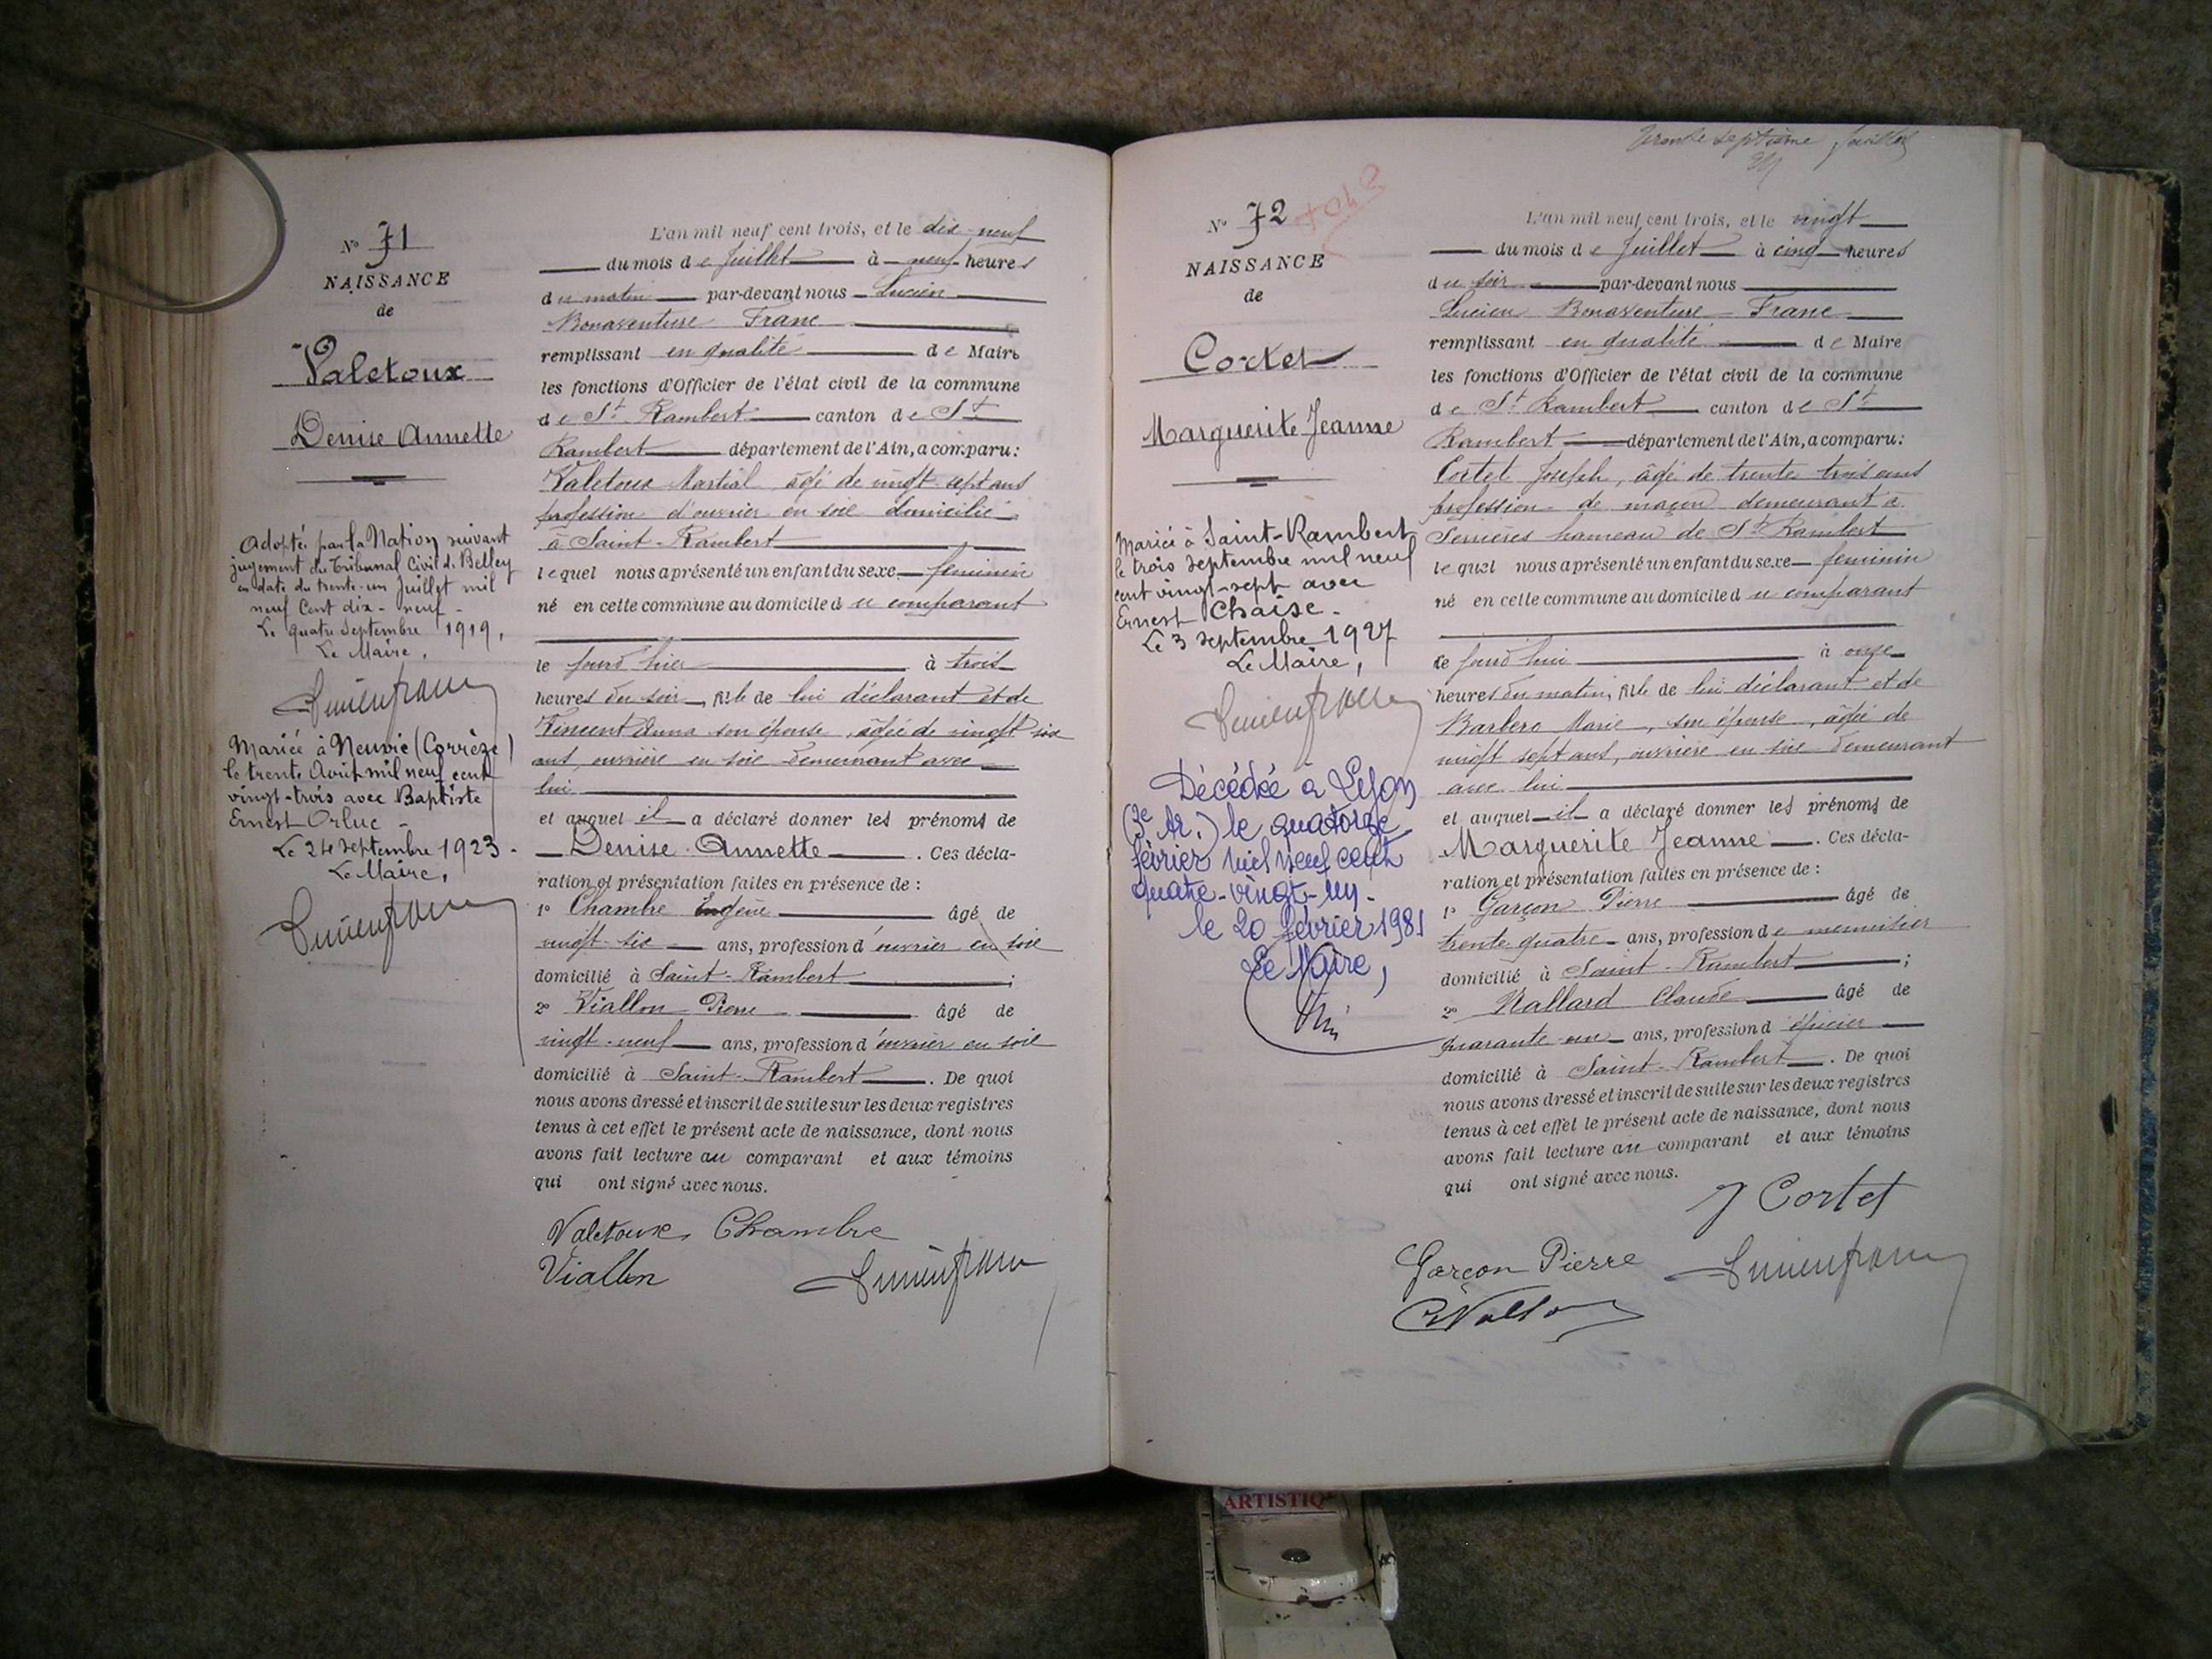 N° 71
NAISSANCE
de
Valetoux
Denise Annette
Adoptée par la Nation suivant
jugement du Tribunal Civil de Belley
en date du trente-un Juillet mil
neuf Cent dix-neuf-
Le quatre Septembre 1919,
Le Maire,
Lucien franc
Mariée à Neuvic (Corrèze)
le trente Avril mil neuf cent
vingt-trois avec Baptiste
Ernest Orluc -
Le 24 septembre 1923.
Le Maire,
Lucien franc
L'an mil neuf cent trois, et le dix-neuf
du mois de Juillet à neuf heures
du matin par-devant nous Lucien
Bonaventure Franc
remplissant en qualité de Maire
les fonctions d'Officier de l'état civil de la commune
de St Rambert canton de St
Rambert département de l'Ain, a comparu:
Valetoux Martial âgé de vingt-sept ans
profession d'ouvrier en soie domicilié
à Saint-Rambert
lequel nous a présenté un enfant du sexe feminin
né en cette commune au domicile du comparant
le jourd'hier à trois
heures du soir, fille de lui déclarant et de
Vincent Anna son épouse, âgée de vingt six
ans, ouvrière en soie demeurant avec
lui
et auquel il a déclaré donner les prénoms de
Denise Annette. Ces décla-
ration et présentation faites en présence de :
1° Chambre Eugène âgé de
vingt-six ans, profession d'ouvrier en soie
domicilié à Saint-Rambert ;
2° Viallon Pierre âgé de
vingt-neuf ans, profession d'ouvrier en soie
domicilié à Saint-Rambert. De quoi
nous avons dressé et inscrit de suite sur les deux registres
tenus à cet effet le présent acte de naissance, dont nous
avons fait lecture au comparant et aux témoins
qui ont signé avec nous.
Valetoux Chambre
Viallon Lucien franc
trente septième feuillet
N° 72
NAISSANCE
de
Cortet
Marguerite Jeanne
Mariée à Saint-Rambert
le trois septembre mil neuf
cent vingt-sept avec
Ernest Chaise-
Le 3 septembre 1927
Le Maire,
Lucien franc
Décédée à Lyon
(3e Ar.) le quatorze
février mil neuf cent
quatre-vingt-un-
le 20 février 1981
Le Maire,
L'an mil neuf cent trois, et le vingt
du mois de Juillet à cinq heures
du soir par-devant nous
Lucien Bonaventure Franc
remplissant en qualité de Maire
les fonctions d'Officier de l'état civil de la commune
de St Rambert canton de St
Rambert département de l'Ain, a comparu:
Cortet Joseph, âgé de trente trois ans
profession de maçon demeurant à
Serrières hameau de St Rambert
lequel nous a présenté un enfant du sexe feminin
né en cette commune au domicile du comparant
ce jourd'hui à onze
heures du matin, fille de lui déclarant et de
Barbero Marie, son épouse, âgée de
vingt sept ans, ouvrière en soie demeurant
avec lui
et auquel il a déclaré donner les prénoms de
Marguerite Jeanne. Ces décla-
ration et présentation faites en présence de :
1° Garçon Pierre âgé de
trente quatre ans, profession de menuisier
domicilié à Saint-Rambert ;
2° Nallard Claude âgé de
quarante-un ans, profession d'épicier
domicilié à Saint-Rambert. De quoi
nous avons dressé et inscrit de suite sur les deux registres
tenus à cet effet le présent acte de naissance, dont nous
avons fait lecture au comparant et aux témoins
qui ont signé avec nous.
J Cortet
Garçon Pierre Lucien franc
ARTISTIQ